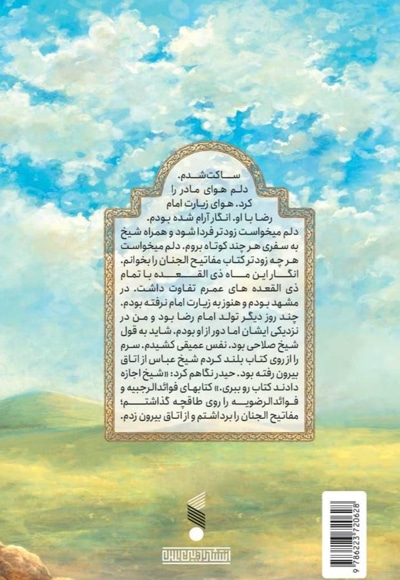 ساکت شدم.
دلم هوای مادر را
کرد. هوای زیارت امام
رضا با او. انگار آرام شده بودم.
دلم میخواست زودتر فردا شود و همراه شیخ
به سفری هر چند کوتاه بروم. دلم میخواست
هر چه زودتر کتاب مفاتیح الجنان را بخوانم.
انگار این ماه ذی القعده با تمام
ذی القعده های عمرم تفاوت داشت. در
مشهد بودم و هنوز به زیارت امام نرفته بودم.
چند روز دیگر تولد امام رضا بود و من در
نزدیکی ایشان اما دور از او بودم. شاید به قول
شیخ صلاحی بود. نفس عمیقی کشیدم. سرم
را از روی کتاب بلند کردم شیخ عباس از اتاق
بیرون رفته بود. حیدر نگاهم کرد: «شیخ اجازه
دادند کتاب رو ببری.» کتابهای فوائدالرجبیه و
فوائدالرضویه را روی طاقچه گذاشتم؛
مفاتیح الجنان را برداشتم و از اتاق بیرون زدم.
9 786223 720628